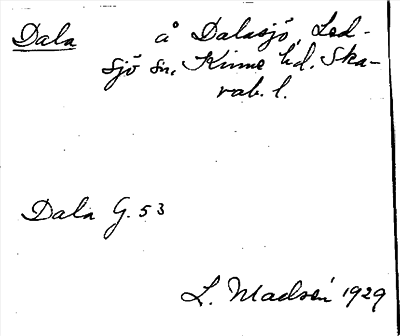 Dala å Dalasjö, Led-
sjö sn, Kinne hd. Ska-
rab. l.
Dala G. 53
L. Madsén 1929